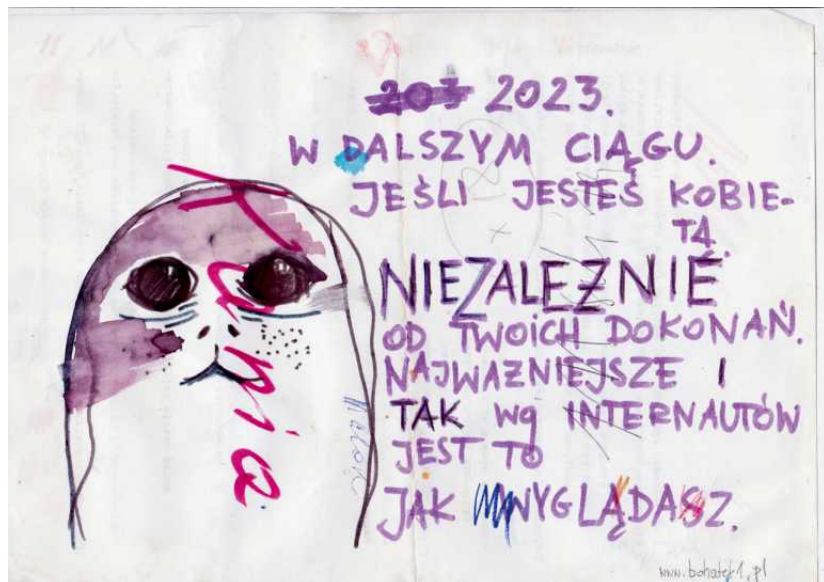 203 2023.
W DALSZYM CIĄGU.
JEŚLI JESTEŚ KOBIE-
TĄ.
NIEZALEŻNIE
OD TWOICH DOKONAŃ.
NAJWAŻNIEJSZE I
TAK Wg INTERNAUTÓW
JEST TO
JAK WYGLĄDASZ.
Kania